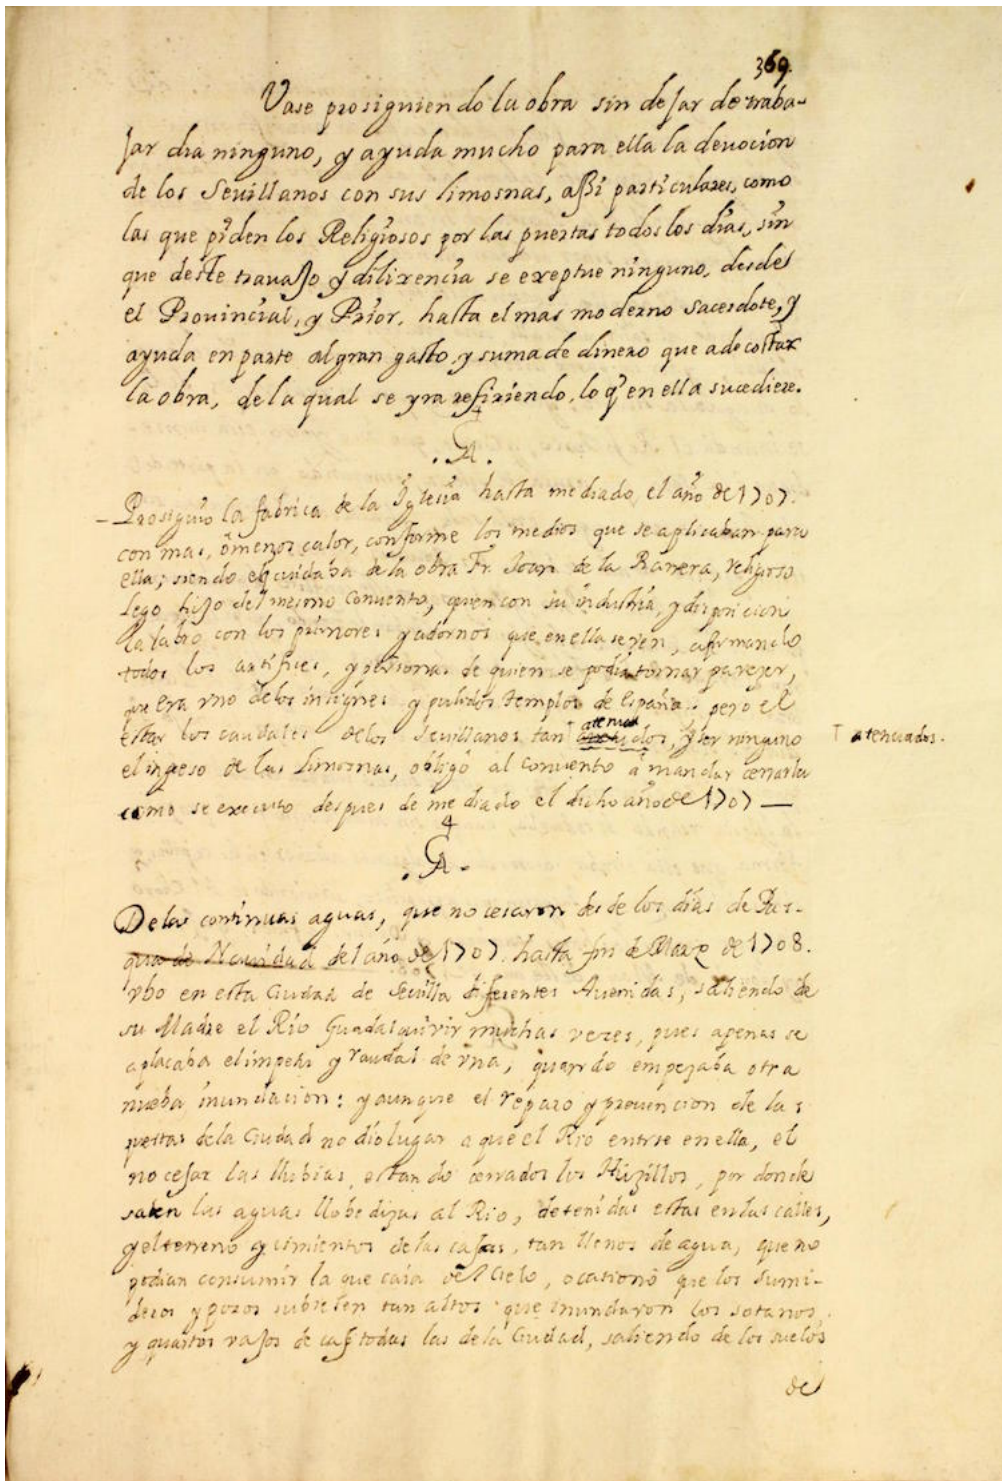 369.
Vase prosiguiendo la obra sin dejar de traba-
jar dia ninguno, y ayuda mucho para ella la deuocion
de los Seuillanos con sus limosnas, assi particulares, como
las que piden los Religiosos por las puertas todos los dias, sin
que deste trauajo y dilixencia se exeptue ninguno, desde
el Prouincial, y Prior, hasta el mas moderno Sacerdote, y
ayuda en parte al gran gasto, y suma de dinero que a de costar
la obra, de la qual se yra refiriendo, lo q̃ en ella sucediere.
Prosiguio la fabrica de la Yglesia hasta mediado el año de 1707.
con mas, ò menos calor, conforme los medios que se aplicaban para
ella; siendo el q cuidaba de la obra Fr. Joan de la Barrera, religioso
Lego hijo del mesmo Convento, quien con su industria, y disposicion
la labro con los primores y adornos que en ella se ven, afirmando
todos los artifices, y personas de quien se podia tomar parezer,
que era vno de los insignes y pulidos templos de España. pero el
estar los caudales de los Sevillanos tan atenuados, y ser ninguno
atenuados.
el ingreso de las Limosnas, obligò al convento à mandar cerrarla
como se executo despues de mediado el dicho año de 1707 —
De las continuas aguas, que no cesaron desde los dias de Pas-
qua de Navidad del año de 1707. hasta fin de Marzo de 1708.
vbo en esta Ciudad de Sevilla diferentes Auenidas, saliendo de
su Madre el Rio Guadalquivir muchas vezes, pues apenas se
aplacaba el impetu y raudal de vna, quando empezaba otra
nueba inundacion: y aunque el reparo y preuencion de las
puertas de la Ciudad no dio lugar a que el Rio entrse en ella, el
no cesar las llobias, estando cerrados los Huzillos, por donde
salen las aguas llobedizas al Rio, detenidas estas en las calles,
y el terreno y cimientos de las casas, tan llenos de agua, que no
podian consumir la que caia del Cielo, ocasionò que los sumi-
deros y pozos subiesen tan altos que inundaron los sotanos,
y quartos vajos de casi todas las de la Ciudad, saliendo de los suelos
de